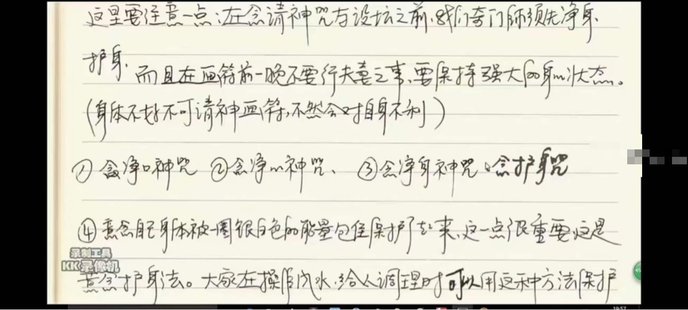 这里要注意一点:在念请神咒与设坛之前,我们奇门师须先净身
护身,而且在画符前一晚不要行夫妻之事,要保持强大的身心状态。
(身体不好不可请神画符,不然会对自身不利)
①念净口神咒 ②念净心神咒、③念净身神咒:念护身咒
④意念自己身体被一圈银白色的能量包住保护起来,这一点很重要,这是
意念护身法。大家在操作风水、给人调理时可以用这种方法保护
录制工具
KK录像机